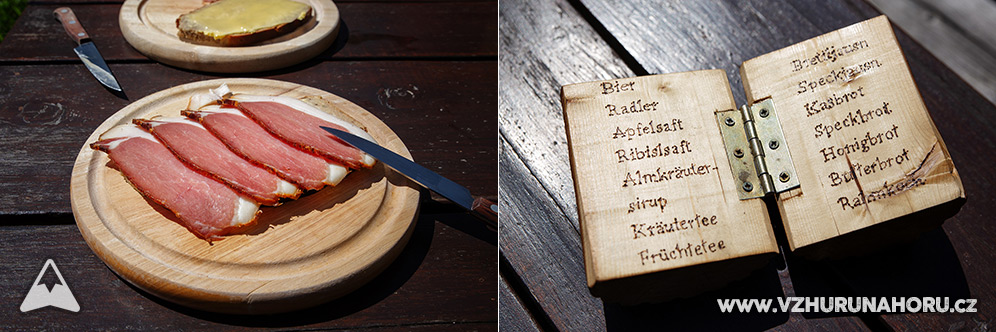 Bier
Radler
Apfelsaft
Ribislsaft
Almkräuter-
sirup
Kräutertee
Früchtetee
Brettljausn
Speckjausn
Kasbrot
Speckbrot
Honigbrot
Butterbrot
WWW.VZHURUNAHORU.CZ